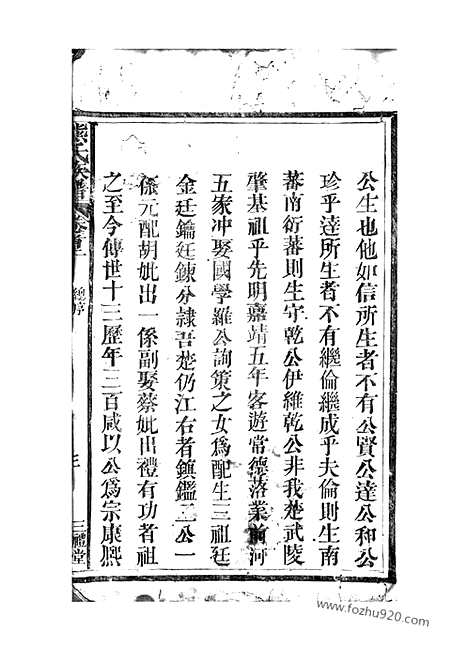 公生也他如信所生者不有公賢公達公和公
珍乎達所生者不有繼倫繼成乎夫倫則生南
蕃南衍蕃則生守乾公伊維乾公非我楚武陵
肇基祖乎先明嘉靖五年客遊常德落業前河
五家冲娶國學羅公詢策之女爲配生三祖廷
金廷鑰廷鍊分隷吾楚仍江右者鎮鑑二公一
係元配胡妣出一係副娶蔡妣出禮有功者祖
之至今傳世十三歷年三百咸以公爲宗康熙
熊氏族譜 卷首 總序 三禮堂
www.fozhu920.com